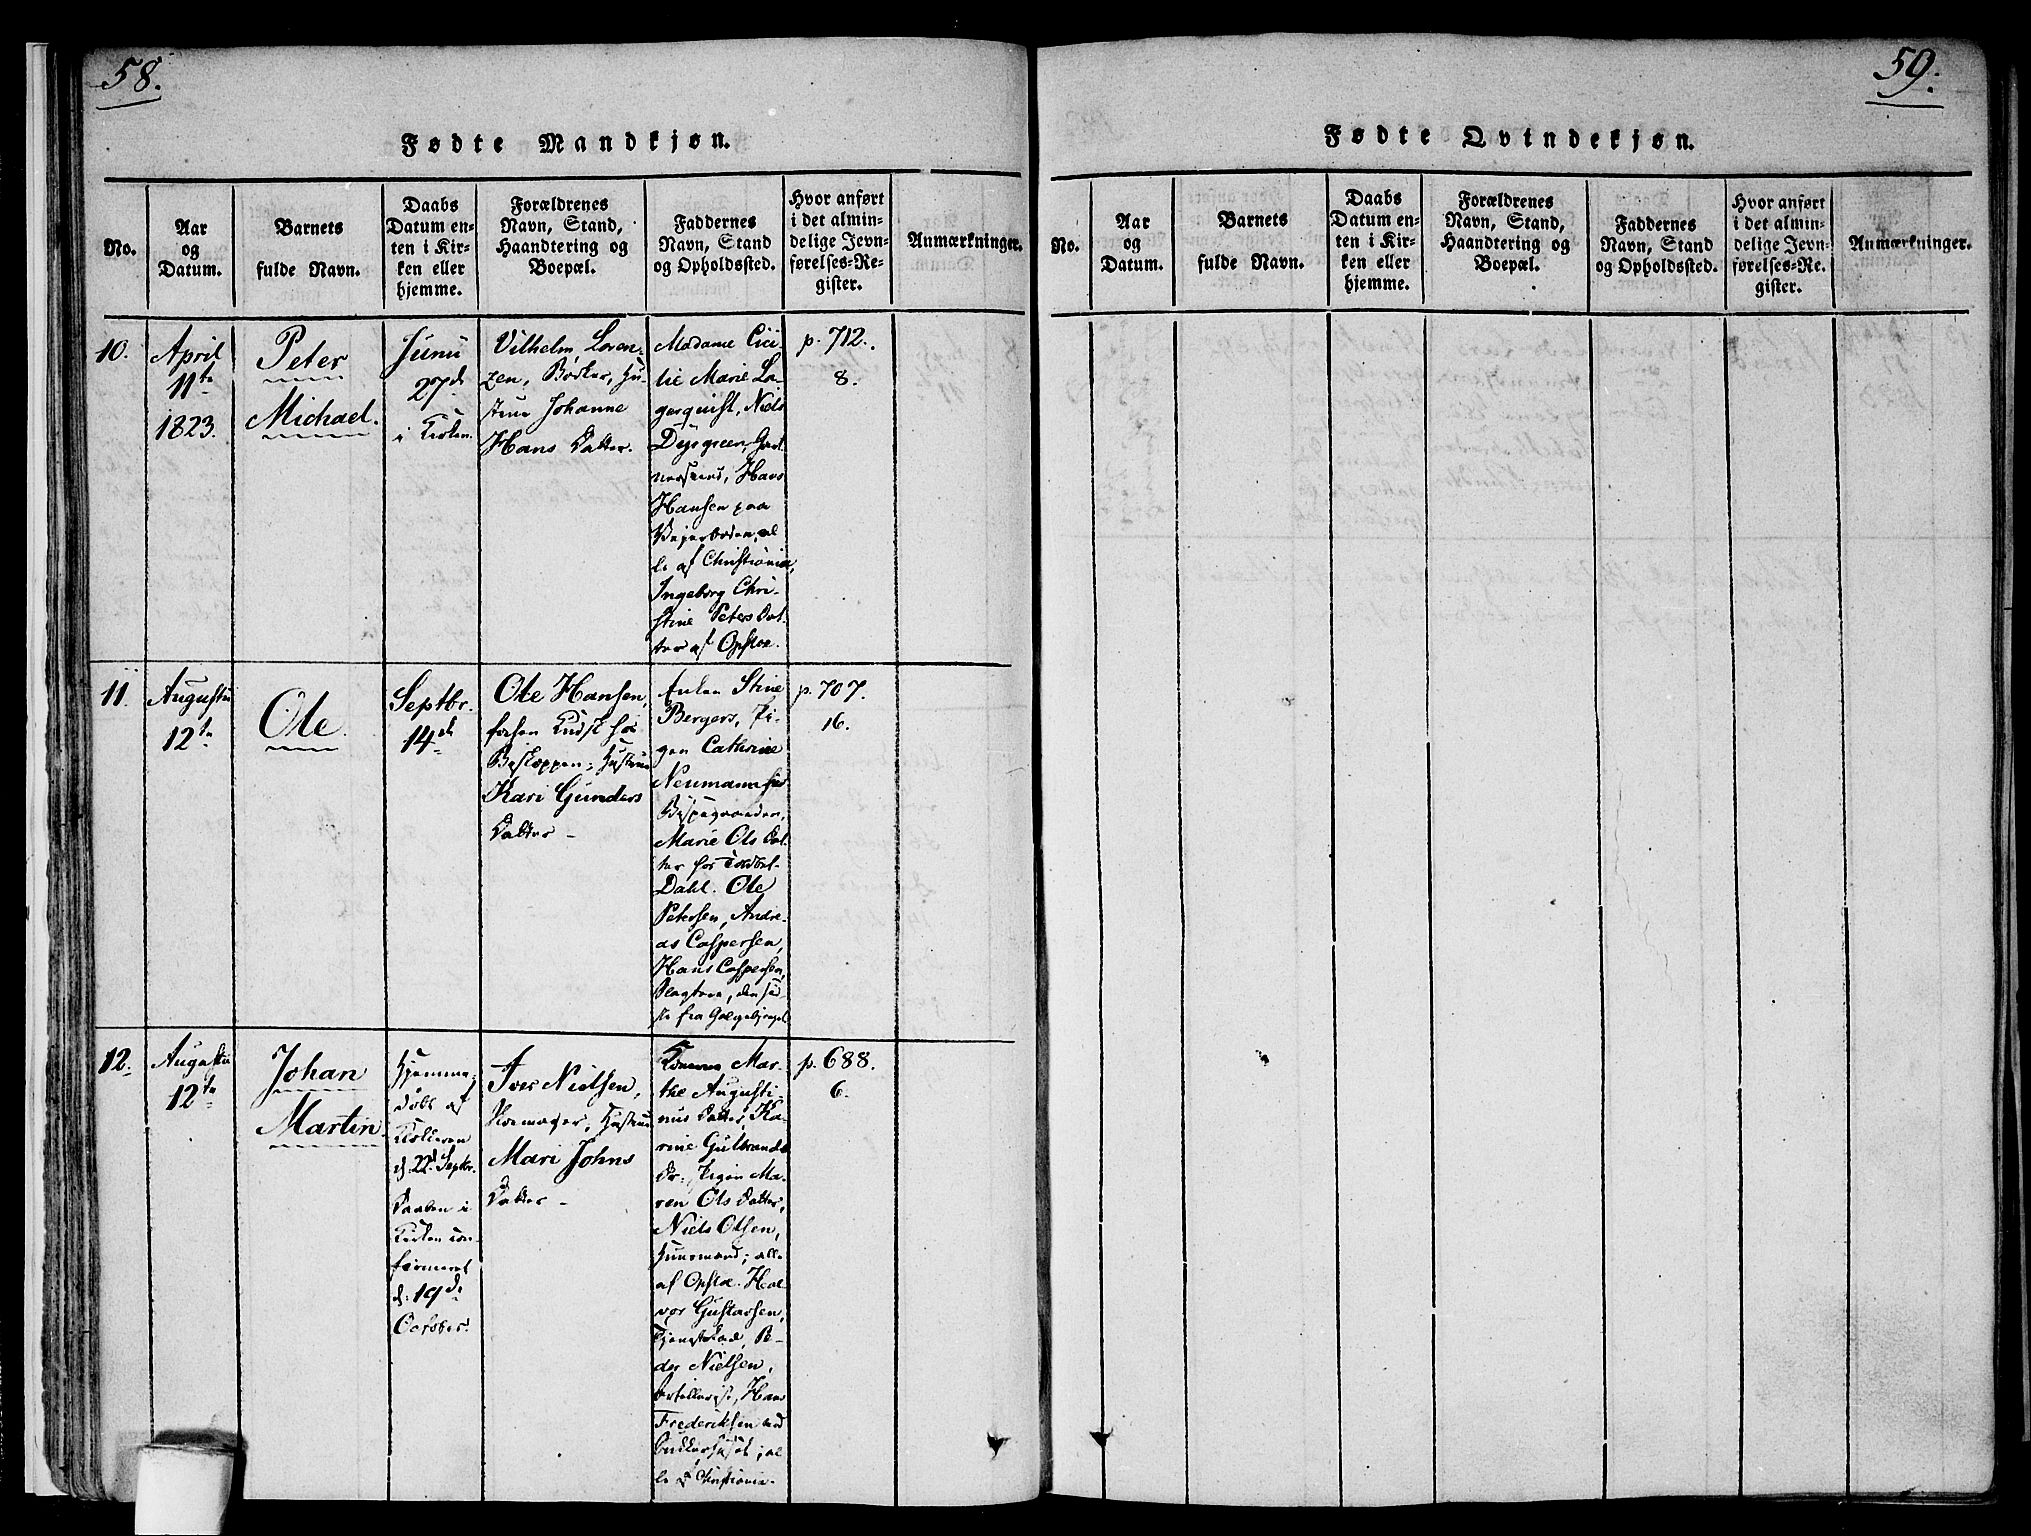 58.
Fødte Mandkjøn.
No.
Aar
og
Datum.
Barnets
fulde Navn.
Daabs
Datum en-
ten i Kir-
ken eller
hjemme.
Forældrenes
Navn, Stand,
Haandtering og
Boepæl.
Faddernes
Navn, Stand
og Opholdssted.
Hvor anført
i det almin-
delige Jevn-
førelses-Re-
gister.
Anmærkninger.
10.
April
11te
1823.
Peter
Michael.
Junii
27de
i Kirken.
Vilhelm Loren-
zen, Bødker, Hu-
strue Johanne
Hans Datter.
Madame Cici-
lie Marie La-
gerquist, Niels
Hans
Hansen paa
al-
le af Christiania,
Ingeborg Chri-
stine Peters Dat-
ter af Opsloe.
p. 712.
8.
11.
Augustii
12te
Ole.
Septbr.
14de
Ole Hansen,
forhen Kudsk hos
Biskoppen, Hustrue
Kari Gunders
Datter –
Enken Stine
Bergers, Pi-
gen Cathrine
Neumann fra
Bispegaarden,
Marie Ols Dat-
ter fra
Dahl. Ole
Petersen, Andre-
as Caspersen,
Hans Caspersen,
Slagtere, den sid-
ste fra Galgebjerget
p. 707.
16.
12.
Augustii
12te
Johan
Martin.
Hjemme-
døbt af
Klokkeren
d: 22de Septbr.
Daaben i
Kirken con-
firmeret
d: 19de
October.
Iver Nielsen,
Skomager, Hustrue
Mari Johns
Datter –
Konerne Mar-
the Augusti-
nus Datter, Ka-
rine Gulbrands
Dr: Pigen Ma-
ren Ols Datter,
Niels Olsen,
Huusmand; alle
af Opsloe. Hal-
vor Gustavsen,
Tjenestekarl, Pe-
der Nielsen,
Artillerist, Hans
Frederiksen ved
al-
le i Christiania.
p. 688.
6.
59.
Fødte Qvindekjøn.
No.
Aar
og
Datum.
Barnets
fulde Navn.
Daabs
Datum en-
ten i Kir-
ken eller
hjemme.
Forældrenes
Navn, Stand,
Haandtering og
Boepæl.
Faddernes
Navn, Stand
og Opholdssted.
Hvor anført
i det almin-
delige Jevn-
førelses-Re-
gister.
Anmærkninger.